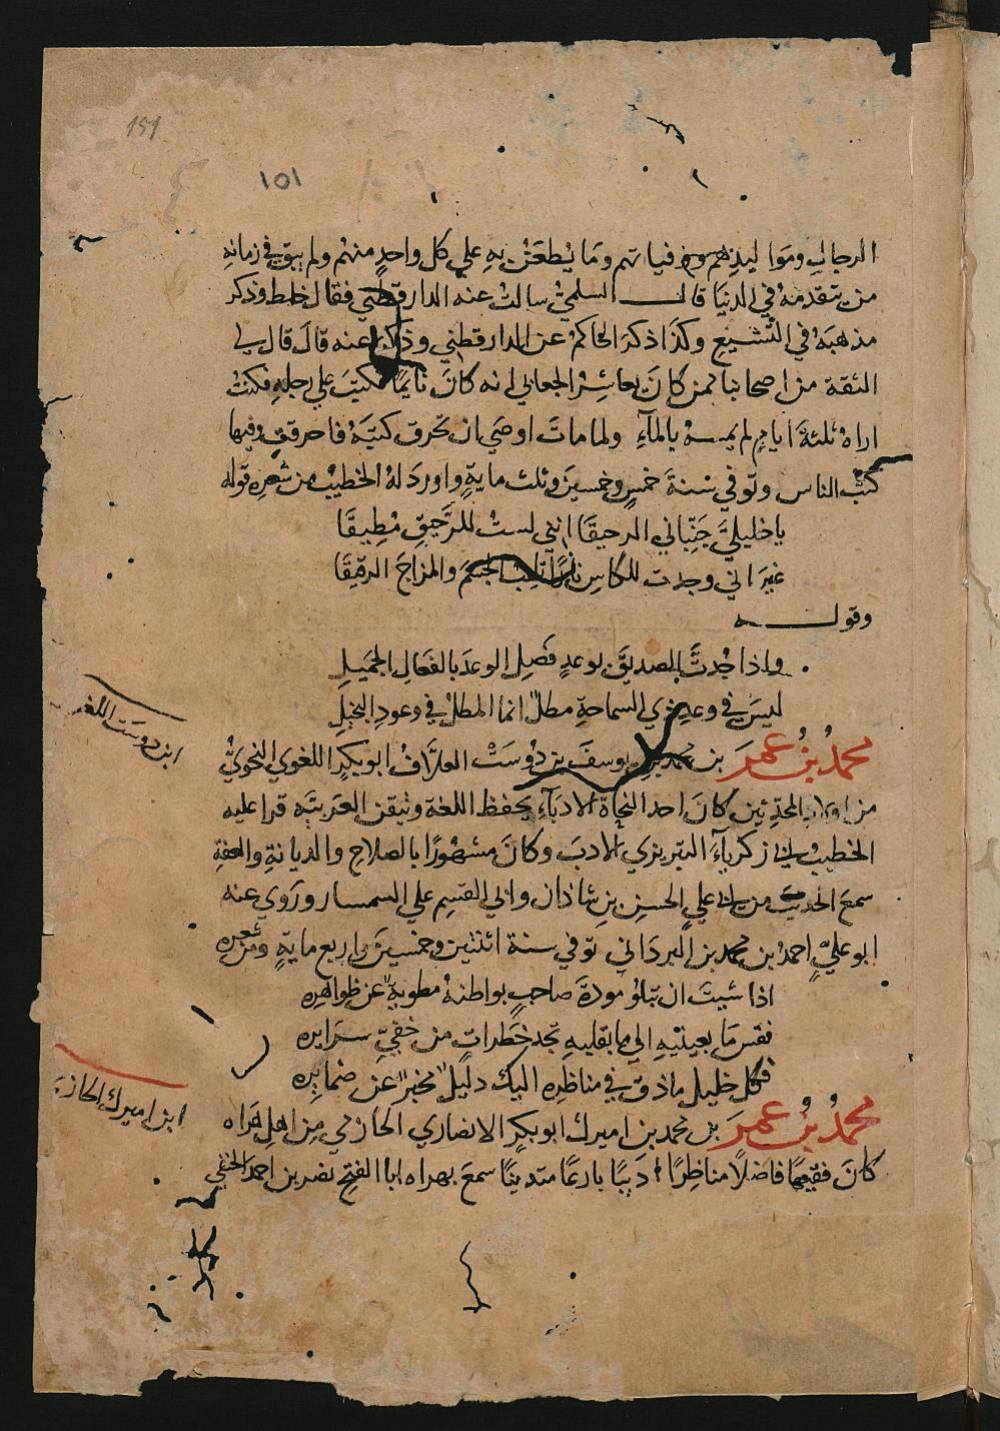 151
١٥١
الرجال ومواليدهم ووفياتهم وما يُطعَن به علي كل واحدٍ منهم ولم يبق في زمانه
من يتقدمه في الدنيا قال السلمي سالت عنه الدارقطني فقال خلط وذكر
مذهبَهُ في التشيع وكذا ذكرَ الحاكم عن الدارقطني وذكر عنه قالَ قال لي
الثقة من اصحابنا ممن كانَ يعاشِرُ الجعابي انه كانَ نايمًا فكتبَ علي رجلهِ فكنتُ
اراهُ ثلثةَ ايامٍ لم يمسهُ بالمآءِ ولما ماتَ اوصَي ان تحرق كتبَهُ فاحرقت وفيها
كتب الناس وتوفي سنةَ خمسٍ وخمسينَ وثلث مايةٍ واوردَ لهُ الخطيبُ من شعرِهِ قوله
يا خليليَّ جَنِّباني الرحيقَا انني لستُ للرَّحيقِ مُطِيقَا
غيرَ اني وجدت للكاسِ نارًا تلهبُ الجسمَ والمزاجَ الرقيقَا
وقولـــه
واذا جُدتَّ للصديقِ بوعدٍ فصِلِ الوعدَ بالفَعَالِ الجميلِ
ليسَ في وعدِ ذي السماحةِ مطلٌ انما المطلُ في وعودِ البخيلِ
محمدُ بنُ عمرَ بن محمدِ بن يوسفَ بن دُوسَتْ العلَّافُ ابو بكرٍ اللغوي النحويُّ
من اولاد المحدِّثين كانَ احد النحاة الادبآءِ يحفظ اللغة ويتقن العربيَّه قرا عليه
الخطيبُ ابي زكريآءَ التبريزي الادبَ وكانَ مشهُورًا بالصلاحِ والديانةِ والعفةِ
سمعَ الحديثَ من ابي عليٍ الحسن بن شاذان وابي القسمِ علي السمسار ورَوي عنه
ابو عليٍّ احمدُ بن محمد بن البردَاني توفي سنة اثنتين وخمسينَ واربع مايةٍ ومن شعره
اذا شيتَ ان تبلُو مودةَ صاحبٍ بواطنهُ مطويةٌ عن ظواهرِه
فقس مَا بعينيهِ الي ما بقلبهِ تجد خَطَراتٍ من خفيِّ سرَايره
فكل خليل ماذقٍ في مناظرِه اليك دليلٌ مخبرٌ عن ضمايره
محمدُ بنُ عمرَ بن محمد بن اميرك ابو بكرٍ الانصاري الحازمي من اهلِ هَراه
كانَ فقيهًا فاضلًا مناظِرًا اديبًا بارعًا متدينًا سمعَ بهراه ابا الفتحِ نصر بن احمدَ الحنفي
ابن دوست اللغوي
ابن اميرك الحازمي